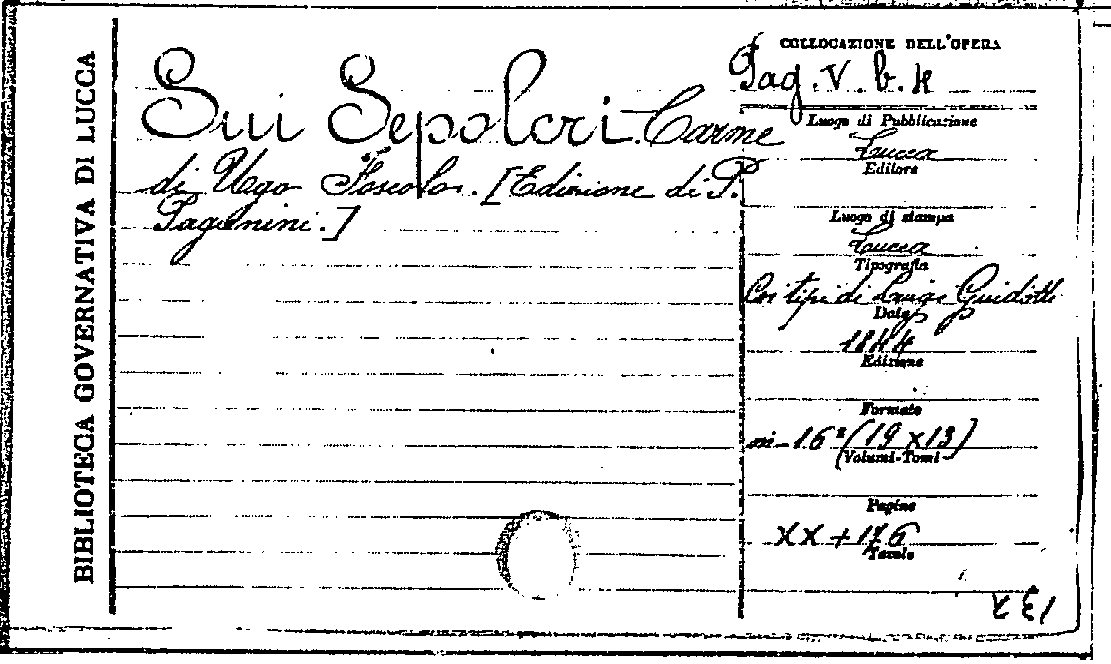 BIBLIOTECA GOVERNATIVA DI LUCCA
Sui Sepolcri. Carme
di Ugo Foscolo. [Edizione di P.
Paganini.]
COLLOCAZIONE DELL'OPERA
Pag. V. b. 4
Luogo di Pubblicazione
Lucca
Editore
Luogo di stampa
Lucca
Tipografia
Coi tipi di Luigi Guidotti
Data
1844
Edizione
Formato
in-16° (19 x 13)
(Volumi-Tomi
Pagine
XX + 176
Tavole